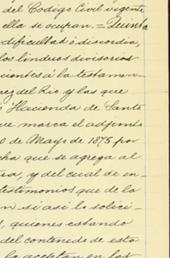 del Codigo Civil vigente
ella se ocupan. = Quinta
dificultad ó discordia,
los linderos divisorios
cuientes á la testamen-
rez del Rio y las que
Hacienda de Santa
que marca el adjunto
de Mayo de 1875 por
cha que se agrega al
ra, y del cual de in-
testimonios que de la
n si asi lo solici-
, quienes estando
del contenido de esta
la aceptan en los